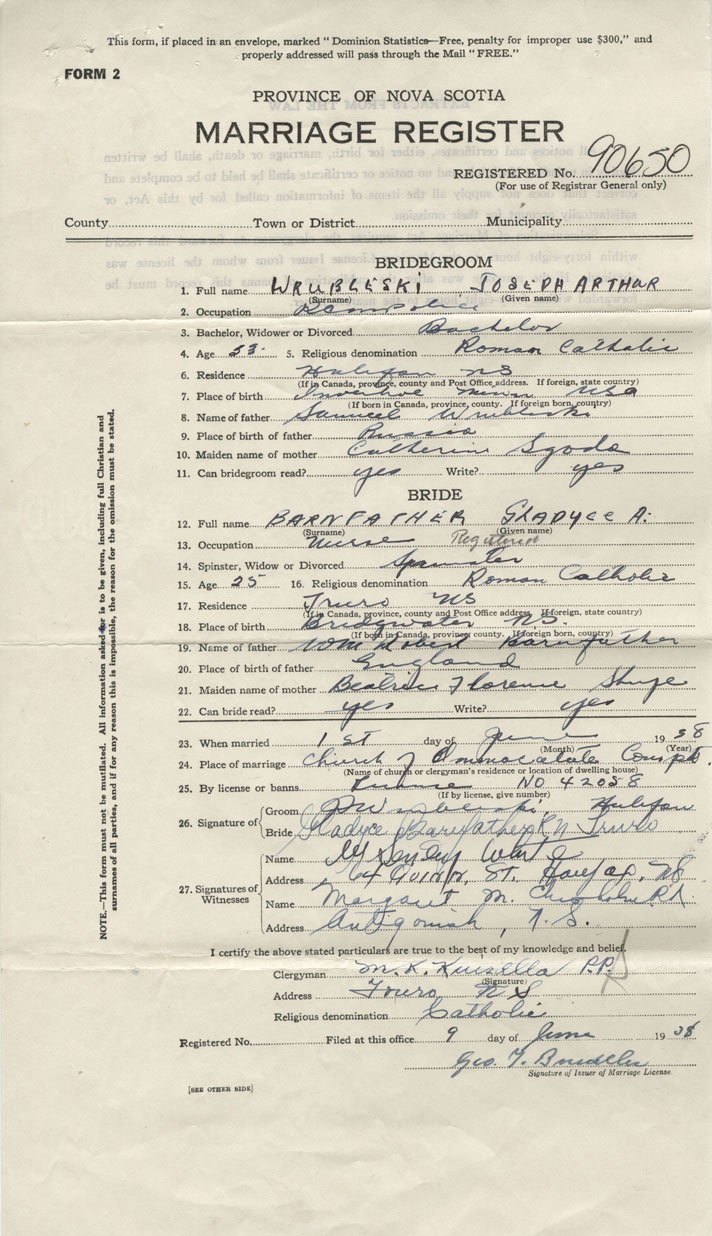 This form, if placed in an envelope, marked "Dominion Statistics—Free, penalty for improper use $300," and
properly addressed will pass through the Mail "FREE."
FORM 2
PROVINCE OF NOVA SCOTIA
MARRIAGE REGISTER
REGISTERED No. 90650
(For use of Registrar General only)
County Town or District Municipality
BRIDEGROOM
1. Full name WRUBLESKI JOSEPH ARTHUR
(Surname) (Given name)
2. Occupation
3. Bachelor, Widower or Divorced Bachelor
4. Age 33 5. Religious denomination Roman Catholic
6. Residence Halifax NS
(If in Canada, province, county and Post Office address. If foreign, state country)
7. Place of birth Minn USA
(If born in Canada, province, county. If foreign born, country)
8. Name of father Samuel Wrubleski
9. Place of birth of father Russia
10. Maiden name of mother Catherine Sgoda
11. Can bridegroom read? yes Write? yes
BRIDE
12. Full name BARNFATHER GLADYCE A.
(Surname) (Given name)
13. Occupation Nurse Registered
14. Spinster, Widow or Divorced Spinster
15. Age 25 16. Religious denomination Roman Catholic
17. Residence Truro NS
(If in Canada, province, county and Post Office address. If foreign, state country)
18. Place of birth Bridgwater NS.
(If born in Canada, province, county. If foreign born, country)
19. Name of father Wm Robert Barnfather
20. Place of birth of father England
21. Maiden name of mother Beatrice Florence
22. Can bride read? yes Write? yes
23. When married 1st day of June 1938
(Month) (Year)
24. Place of marriage Church of Immaculate Concpt.
(Name of church or clergyman's residence or location of dwelling house)
25. By license or banns License NO 42058
(If by license, give number)
26. Signature of
Groom Wrubleski, Halifax
Bride Gladyce Barnfather R N Truro
27. Signatures of Witnesses
Name
Address 64 QUINN, ST. Halifax, NS
Name Margaret M. Chisholm R.N.
Address Antigonish, N.S.
I certify the above stated particulars are true to the best of my knowledge and belief.
Clergyman M. K. Kinsella P.P.
(Signature)
Address Truro NS
Religious denomination Catholic
Registered No. Filed at this office 9 day of June 1938
Geo.
Signature of Issuer of Marriage License
[SEE OTHER SIDE]
NOTE.—This form must not be mutilated. All information asked for is to be given, including full Christian and
surnames of all parties, and if for any reason this is impossible, the reason for the omission must be stated.